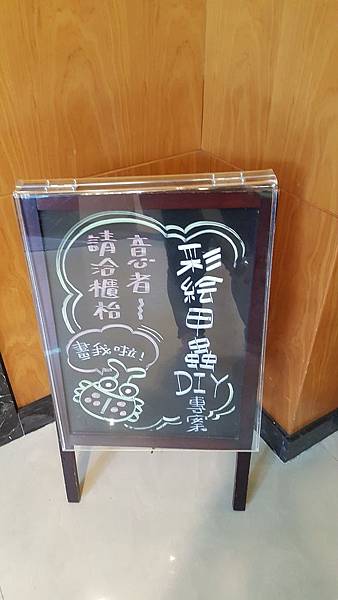 彩絵甲蟲DIY專案
意者~
請洽櫃枱
畫我啦!